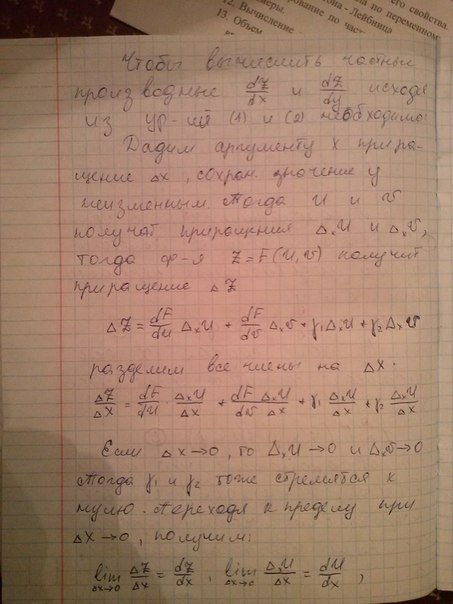 его свойства.
по переменном
12. Вычисление
тона - Лейбница
13. Объем
Чтобы вычислить частные
производные dZ/dx и dZ/dy исходя
из ур-ий (1) и (2) необходимо:
Дадим аргументу x прира-
щение Δx, сохран. значение y
неизменным. Тогда U и v
получат приращения ΔₓU и Δₓv,
тогда ф-я Z = F(U,v) получит
приращение ΔZ
ΔZ = dF/dU ΔₓU + dF/dv Δₓv + γ₁ΔₓU + γ₂Δₓv
разделим все члены на Δx.
ΔZ/Δx = dF/dU ΔₓU/Δx + dF/dv ΔₓU/Δx + γ₁ ΔₓU/Δx + γ₂ ΔₓU/Δx
Если Δx→0, то ΔₓU→0 и Δₓv→0
Тогда γ₁ и γ₂ тоже стремятся к
нулю. Переходя к пределу при
Δx→0, получим:
lim Δx→0 ΔZ/Δx = dZ/dx, lim Δx→0 ΔₓU/Δx = dU/dx,